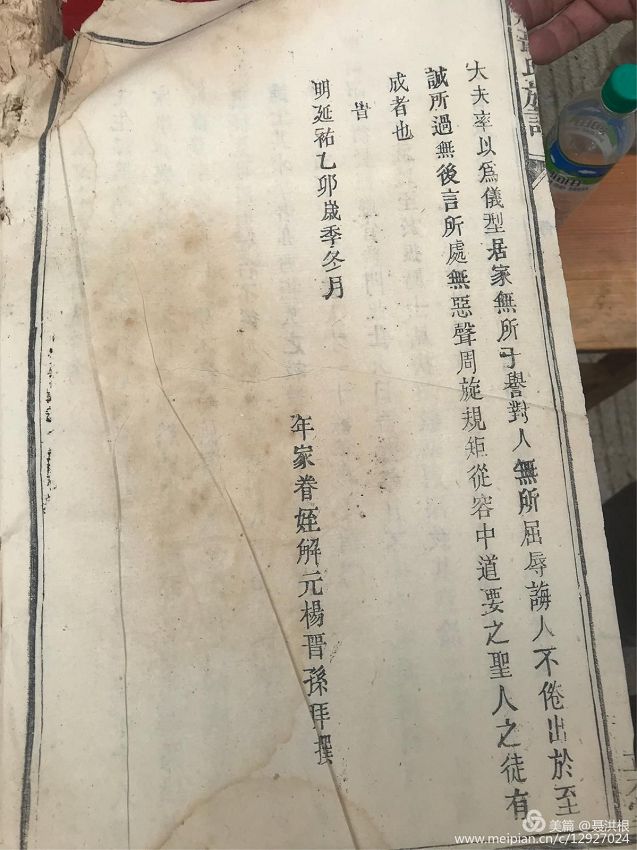 大夫率以爲儀型居家無所于譽對人無所屈辱誨人不倦出於至
誠所過無後言所處無惡聲周旋規矩從容中道要之聖人之徒有
成者也
旹
明延祐乙卯歲季冬月
年家眷姪解元楊晋孫拜撰
氏族譜
美篇 @聂洪根
www.meipian.cn/c/12927024